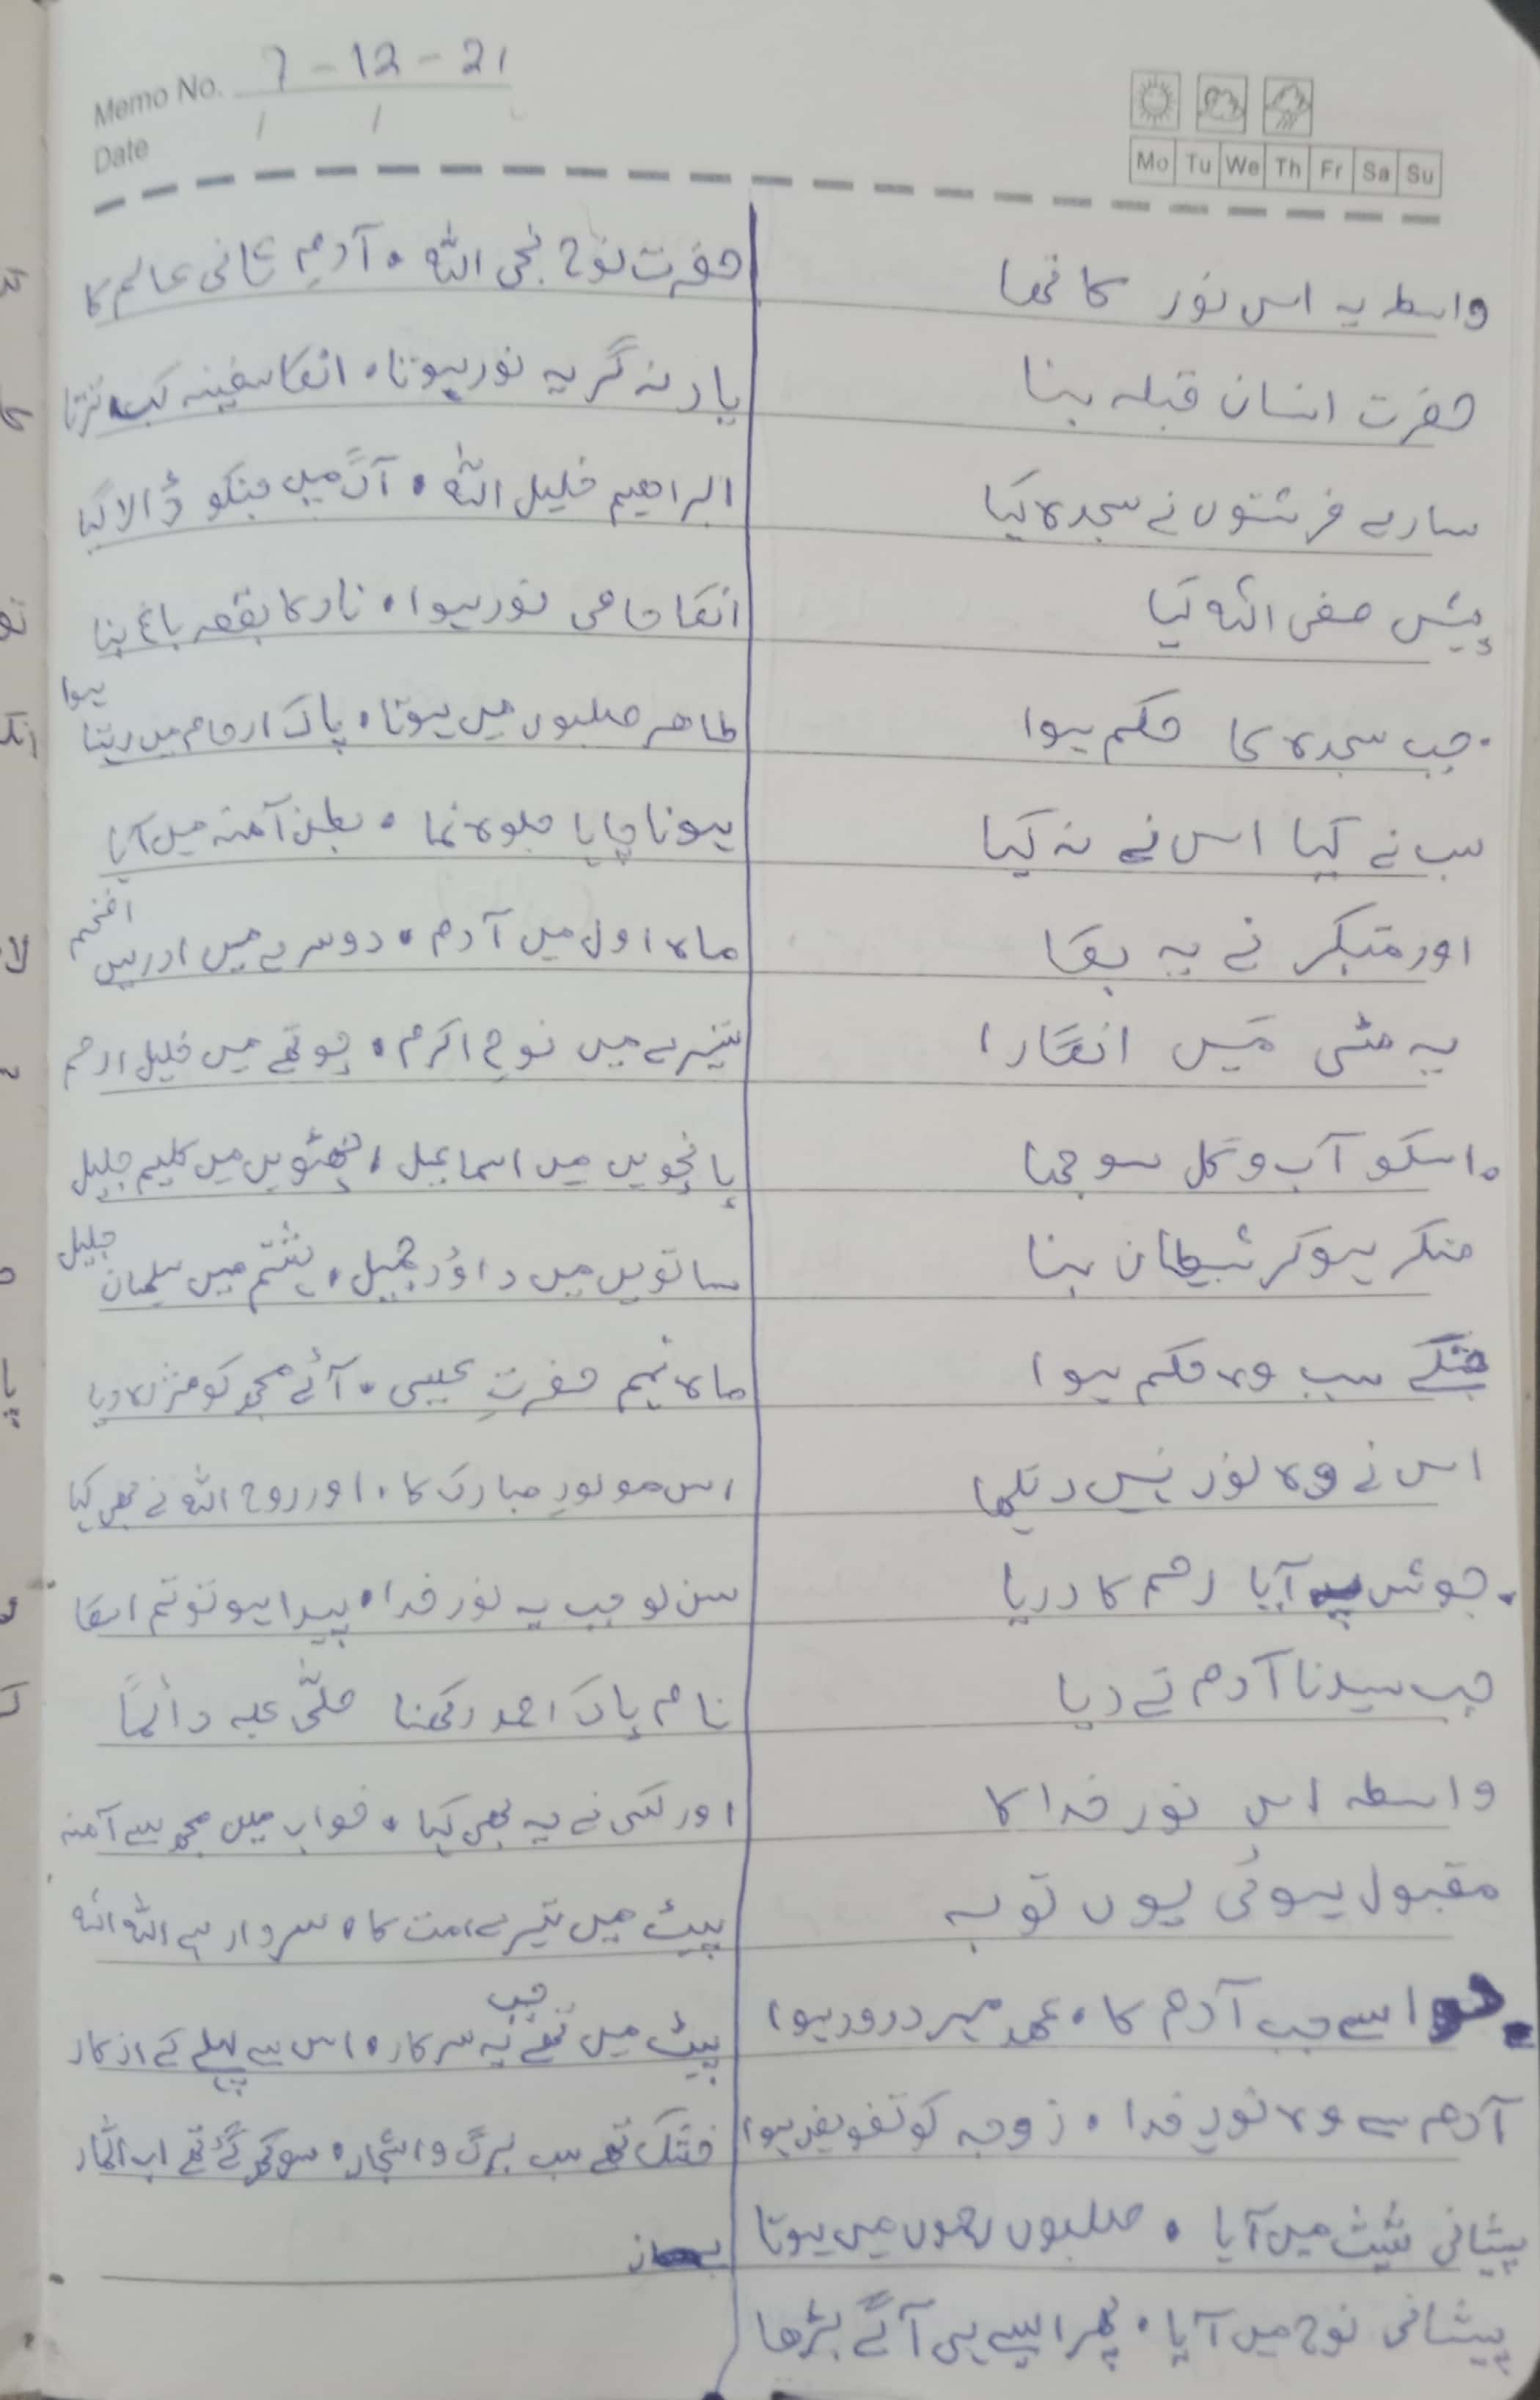 Memo No. 7-12-21
Date / /
Mo Tu We Th Fr Sa Su
واسطہ یہ اس نور کا تھا
حضرت انسان قبلہ بنا
سارے فرشتوں نے سجدہ کیا
پیش صفی اللہ کیا
۔جب سجدہ کا حکم ہوا
سب نے کیا اس نے نہ کیا
اور متبکر نے یہ بقا
یہ مٹی میں انگارا
۔اسکو آب و گل سوجھا
منکر ہوکر شیطان بنا
جنکے سبب وہ حکم ہوا
اس نے وہ نور نہیں دیکھا
۔جوش پہ آیا رحم کا دریا
جب سیدنا آدم نے دیا
واسطہ اس نور خدا کا
مقبول ہوئی یوں توبہ
۔حوا سے جب آدم کا ۔ عہد میر درود ہوا
آدم سے وہ نورِ خدا ۔ زوجہ کو تفویض ہوا
پیشانی شیث میں آیا ۔ صلبوں رحموں میں ہوتا
پیشانی نوح میں آیا ۔ پھر ایسے ہی آگے بڑھا
حضرت نوح نجی اللہ ۔ آدمِ ثانی عالم کا
یار نہ گر یہ نور ہوتا ۔ انکا سفینہ کب ترتا
ابراھیم خلیل اللہ ۔ آگ میں جنکو ڈالا گیا
انکا حامی نور ہوا ۔ نار کا بقعہ باغ بنا
طاھر صلبوں میں ہوتا ۔ پاک ارحام میں رہتا ہوا
ہونا چاہا جلوہ نما ۔ بطن آمنہ میں آیا
ماہ اول میں آدم ۔ دوسرے میں ادریس افخم
تیسرے میں نوح اکرم ۔ چوتھے میں خلیل ارحم
پانچویں میں اسماعیل ۔ چھٹویں میں کلیم جلیل
ساتویں میں داؤد جمیل ۔ ہشتم میں سلیمان جلیل
ماہ نہم حضرتِ عیسی ۔ آئے مجھ کو مژدہ دیا
اس مولودِ مبارک کا ۔ اور روح اللہ نے بھی کہا
سن لو جب یہ نور خدا ۔ پیدا ہو تو تم اسکا
نام پاک احمد رکھنا صلّی علیہ دائماً
اور کسی نے یہ بھی کہا ۔ خواب میں مجھ سے آمنہ
پیٹ میں تیرے امت کا ۔ سردار ہے اللہ اللہ
پیٹ میں تھے جب یہ سرکار ۔ اس سے پہلے کے اذکار
خشک تھے سب برگ و اشجار ۔ سوکھ گئے تھے اب اثمار